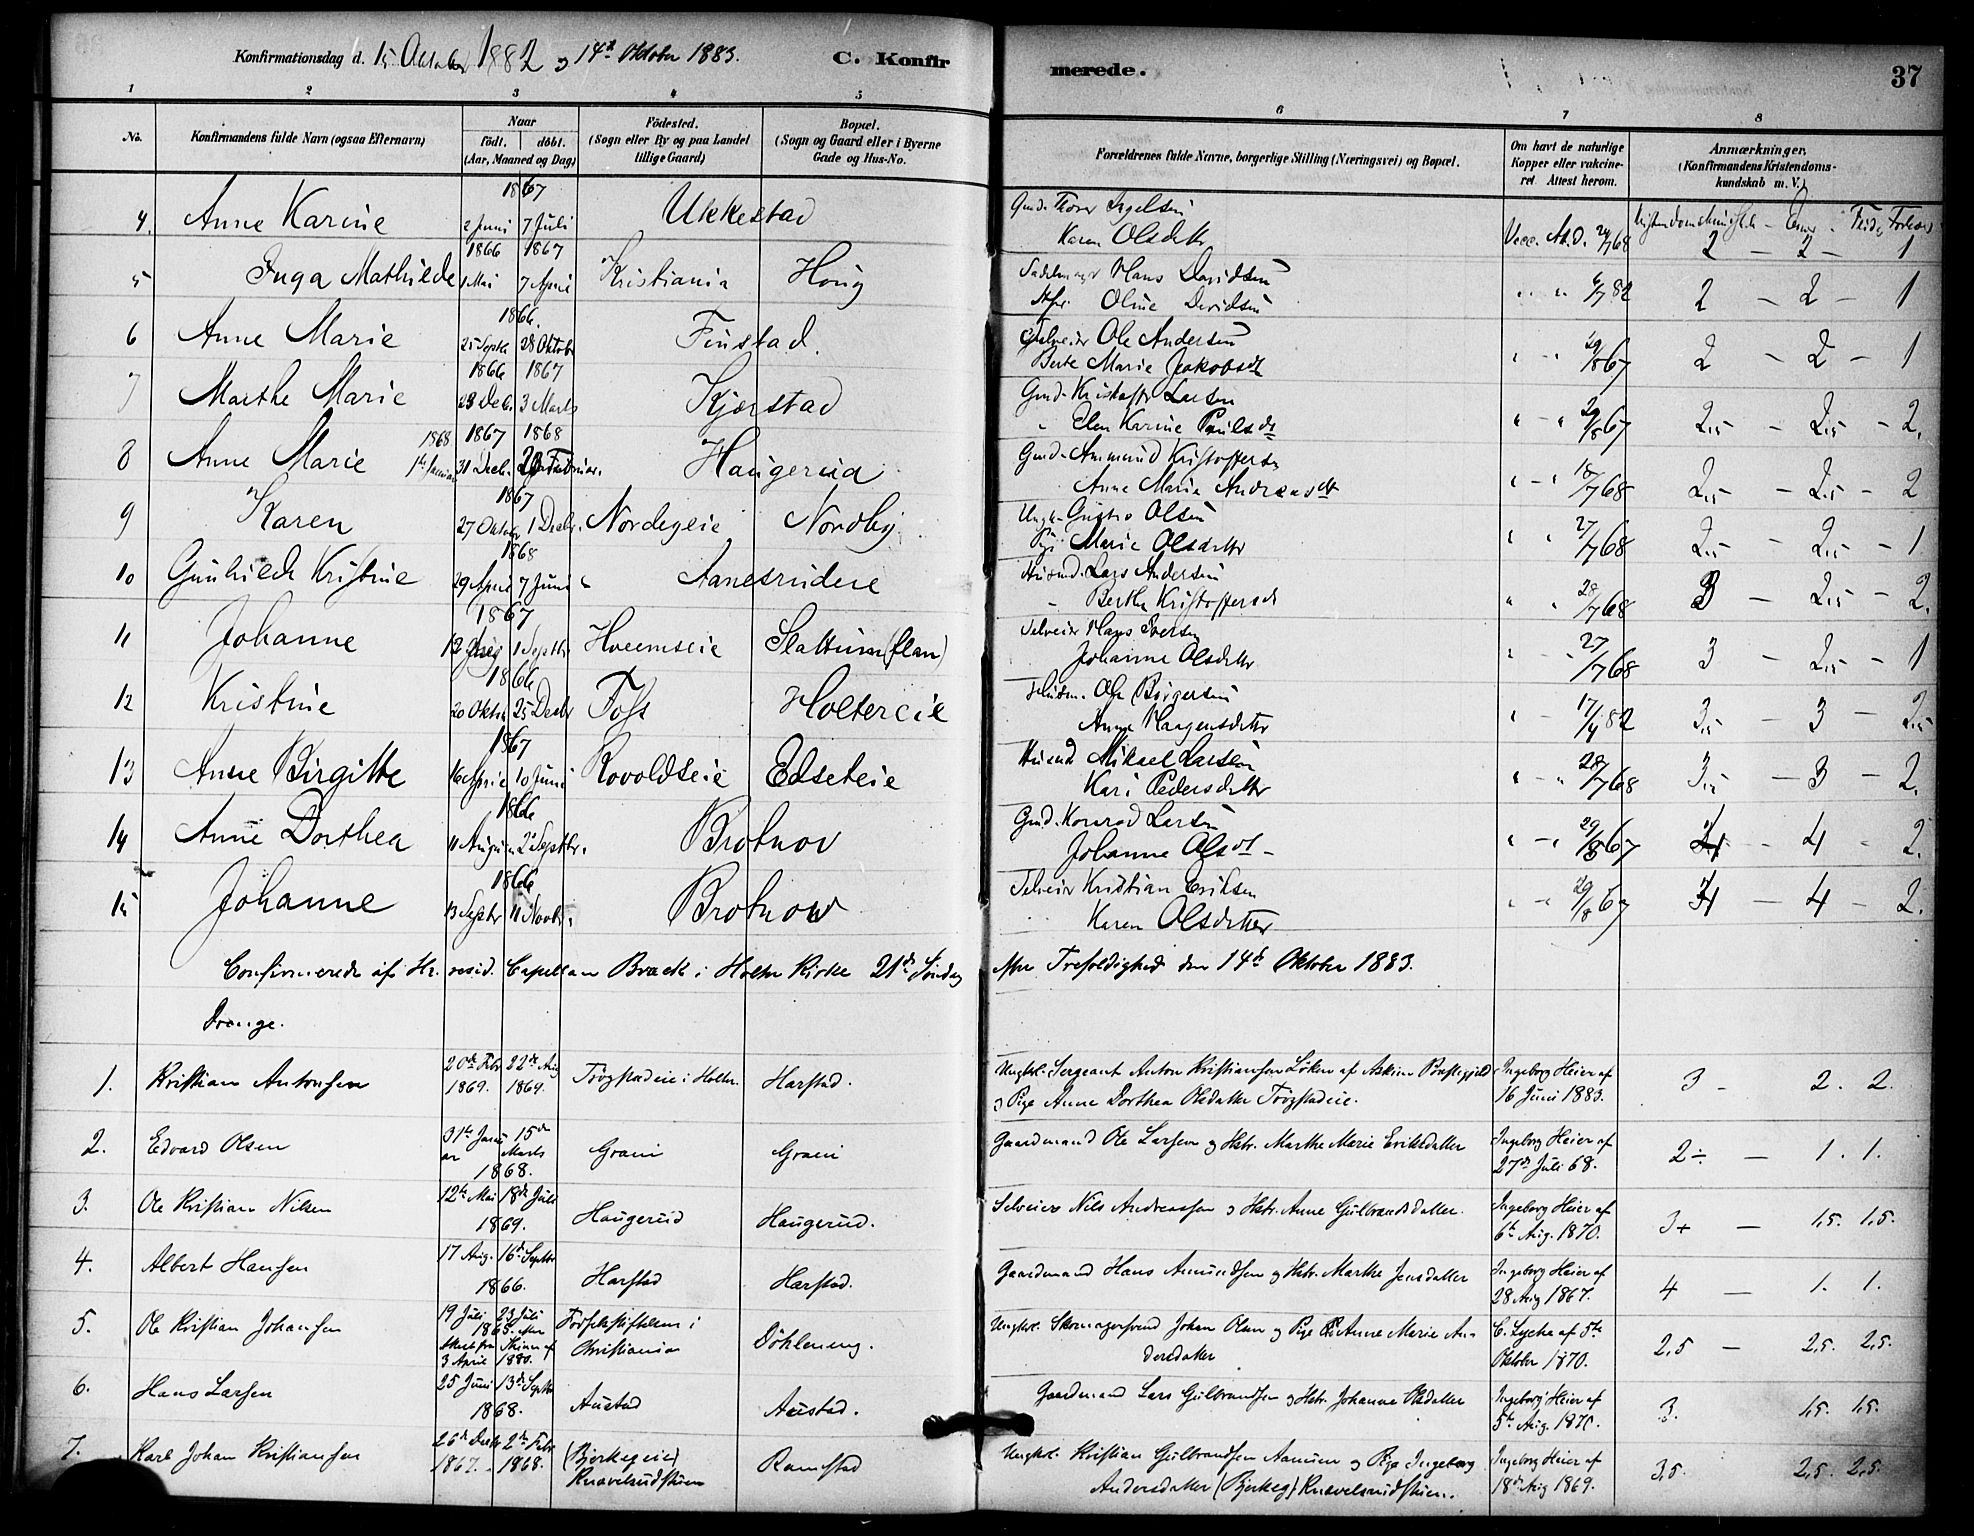 Konfirmationsdag d. 15 Oktober 1882 og 14de Oktober 1883.
C. Konfirmerede.
37
1 2 3 4 5 6 7 8
No. Konfirmandens fulde Navn (ogsaa Efternavn) Naar Født. døbt. (Aar, Maaned og Dag) Fødested. (Sogn eller By og paa Landet tillige Gaard) Bopæl. (Sogn og Gaard eller i Byerne Gade og Hus-No. Forældrenes fulde Navne, borgerlige Stilling (Næringsvei) og Bopæl. Om havt de naturlige Kopper eller vakcineret. Attest herom. Anmærkninger. (Konfirmandens Kristendomskundskab m. V.)
4. Anne Karine 1867 2 Juni 7 Juli Ukkestad Gmd. Thorer Karen Olsdttr Vacc. Att. D. 68 2 – 2 – 1
5 Inga Mathilde 1866 1867 1 Mai 7 April Kristiania Houg Hans Davidsen Oline Davidsen 82 2 – 2 – 1
6 Anne Marie 1866. 25 Septbr 28 Oktobr Finstad. Selveier Ole Andersen Berte Marie Jakobsdt 29/8 67 2 – 2 – 1
7 Marthe Marie 1866 1867 28 Dec. 3 Marts Kjærstad Gmd. Kristoffer Larsen Elen Karine Paulsdt 29/8 67 2,5 – 2,5 – 2.
8 Anne Marie 1868 1ste Januar 1867 1868 31 Decb. Februar. Haugerud Gmd. Ammund Kristoffersen Anne Maria Andreasdt 18/7 68 2,5 – 2,5 – 2
9 Karen 1867 27 Oktober 1 Decbr. Nordbyeie Nordby Ungk. Gustav Olsen Pige Marie Olsdatter 27/7 68 2,5 – 2,5 – 1
10 Gunhilde Kristine 1868 29 April 7 Juni Aanesrudeie Husmd. Lars Andersen Berthe Kristoffersd 28/7 68 3 – 2,5 – 2.
11 Johanne 1867 1 Septbr Hveemseie Slattum (flan) Selveier Hans Iversen Johanne Olsdattr 27/7 68 3 – 2,5 – 1
12 Kristine 1866 20 Oktbr 25 Decbr Foss Holtereie Husm. Ole Børgersen Anne Haagensdatter 17/4 82 3,5 – 3 – 2,5
13 Anne Birgitte 1867 16 April 10 Juni Rovoldseie Edseteie Husmd Mikael Larsen Kari Pedersdatter 28/7 68 3,5 – 3 – 2.
14 Anne Dorthea 1866 11 August 2 Septbr. Brotnov Gmd. Konrad Larsen Johanne Olsdt 29/8 67 4 – 4 – 2.
15 Johanne 1866 13 Septbr 11 Novbr. Brotnov Selveier Kristian Eriksen Karen Olsdatter 29/8 67 4 – 4 – 2.
Confirmerede af Hr. resid. Capellan Brack i Holter Kirke 21de Søndag efter Trefoldighed den 14de Oktober 1883.
Drenge.
1. Kristian Antonsen 20de Febr 1869. 22de Aug 1869. Trøgstadeie i Holter. Harstad. Ungkl. Sergeant Anton Kristiansen Løken af Askim Præstegjeld og Pige Anne Dorthea Olsdatter Trøgstadeie. Ingeborg Heier af 16 Juni 1883. 3 – 2. 2.
2. Edvard Olsen 31te Januar 15de Marts 1868. Grani Grani Gaardmand Ole Larsen og Hstr. Marthe Marie Eriksdatter Ingeborg Heier af 27de Juli 68. 2÷ – 1. 1.
3. Ole Kristian Nilsen 12te Mai 18de Juli 1869. Haugerud Haugerud. Selveier Nils Andreassen og Hstr. Anne Gulbrandsdatter. Ingeborg Heier af 6te Aug. 1870. 3+ – 1,5. 1,5.
4. Albert Hansen 17 Aug. 16de Septbr 1866. Harstad Harstad. Gaardmand Hans Amundsen og Hstr. Marthe Jensdatter Ingeborg Heier af 28 Aug 1867. 4 – 1. 1.
5. Ole Kristian Johansen 19 Juli 23 Juli 1868. efter 3 April 1880. Fødselsstiftelsen i Christiania Døhleneng. Ungkl. Skomagersvend Johan Olsen og Pige Anne Marie Andersdatter C. Lyche af 5te Oktober 1870. 2,5 – 2,5. 2,5.
6. Hans Larsen 25 Juni 13de Septbr 1868. Austad Austad. Gaardmand Lars Gulbrandsen og Hstr. Johanne Olsdatter Ingeborg Heier af 5te Aug. 1870. 3. 1,5. 1,5.
7. Karl Johan Kristiansen 26de Decbr 1867. 2de Febr. 1868. (Bjerkegeie) Knavelsrudstuen Ramstad Ungkl. Kristian Gulbrandsen Aamum og Pige Ingeborg Andersdatter (Bjerkeg) Knavelsrudstuen. Ingeborg Heier af 18de Aug 1869. 3,5. 2,5. 2,5.